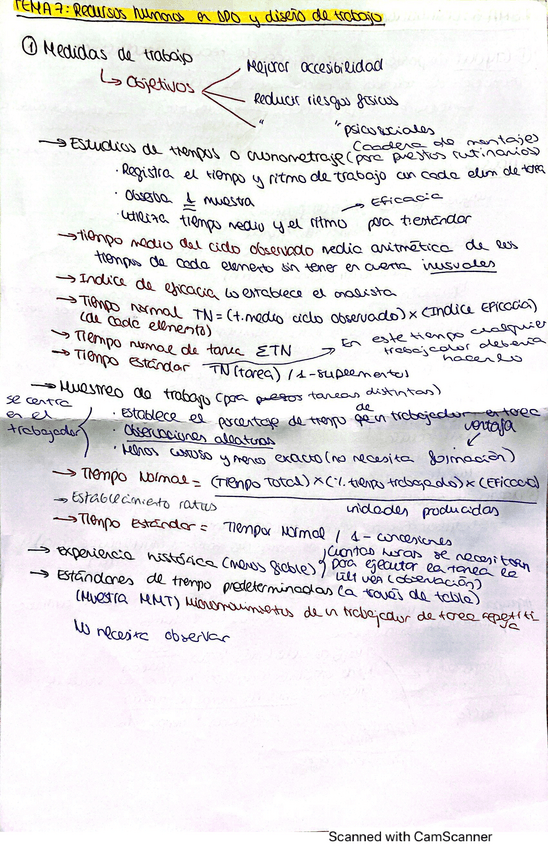 TEMA 7: Recursos humanos en DPO y diseño de trabajo
① Medidas de trabajo
↳ Objetivos
Mejorar accesibilidad
Reducir riesgos físicos
" " psicosociales
→ Estudios de tiempos o cronometraje (para puestos rutinarios)
Cadena de montajes
· Registra el tiempo y ritmo de trabajo en cada elem de tarea
· Observa 1 muestra
· Utiliza tiempo medio y el ritmo para t.estándar
→ Eficacia
→ Tiempo medio del ciclo observado media aritmética de los
tiempos de cada elemento sin tener en cuenta inusuales
→ Indice de eficacia lo establece el analista
→ Tiempo normal TN = (t.medio ciclo observado) × (Indice Eficacia)
(de cada elemento)
→ Tiempo normal de tarea ΣTN
→ Tiempo estándar TN(tarea) / 1 - suplementos
En este tiempo cualquier
trabajador debería
hacerlo
→ Muestreo de trabajo (para puestos tareas distintas)
se centra
en el
trabajador
· Establece el porcentaje de tiempo de un trabajador en tarea
· Observaciones aleatorias
ventaja
· Menos costoso y menos exacto (no necesita formación)
→ Tiempo Normal = (Tiempo Total) × (% tiempo trabajado) × (Eficacia)
unidades producidas
→ Establecimiento ratios
→ Tiempo Estándar = Tiempo Normal / 1 - concesiones
→ Experiencia histórica (menos fiable)
Cuantas horas se necesitaron
para ejecutar la tarea la
últ vez (observación)
→ Estándares de tiempo predeterminados (a través de tabla)
(Muestra MMT) Micromovimientos de un trabajador de tarea repetitiva
↳ No necesita observar
Scanned with CamScanner